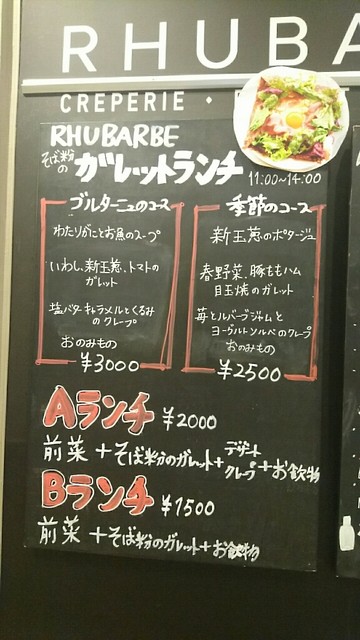 RHUBA
CREPERIE ・
RHUBARBE
そば粉の
ガレットランチ
11:00~14:00
ブルターニュのコース
わたりがことお魚のスープ
いわし、新玉葱、トマトの
ガレット
塩バターキャラメルとくるみ
のクレープ
おのみもの
¥3000
季節のコース
新玉葱のポタージュ
春野菜、豚ももハム
目玉焼のガレット
苺とルバーブジャムと
ヨーグルトソルベのクレープ
おのみもの
¥2500
Aランチ ¥2000
前菜+そば粉のガレット+デザートクレープ+お飲物
Bランチ ¥1500
前菜+そば粉のガレット+お飲物